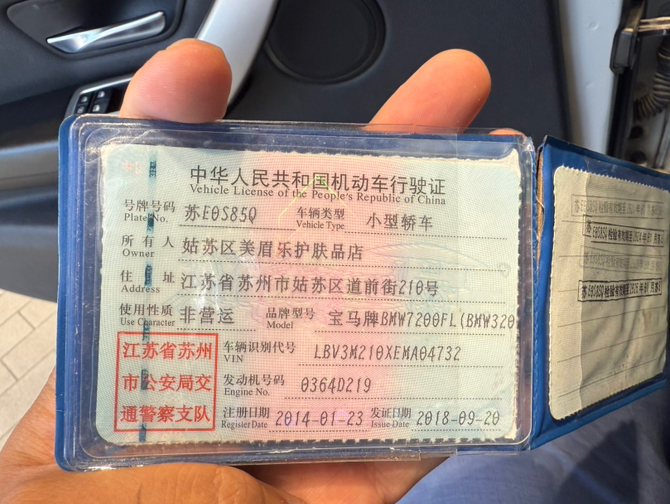 中华人民共和国机动车行驶证
Vehicle License of the People's Republic of China
号牌号码 苏E0S85Q 车辆类型 小型轿车
Plate No. Vehicle Type
所有人 姑苏区美眉乐护肤品店
Owner
住址 江苏省苏州市姑苏区道前街210号
Address
使用性质 非营运 品牌型号 宝马牌BMW7200FL(BMW320
Use Character Model
江苏省苏州
市公安局交
通警察支队
车辆识别代号 LBV3M210XEMA04732
VIN
发动机号码 0364D219
Engine No.
注册日期 2014-01-23 发证日期 2018-09-20
Register Date Issue Date